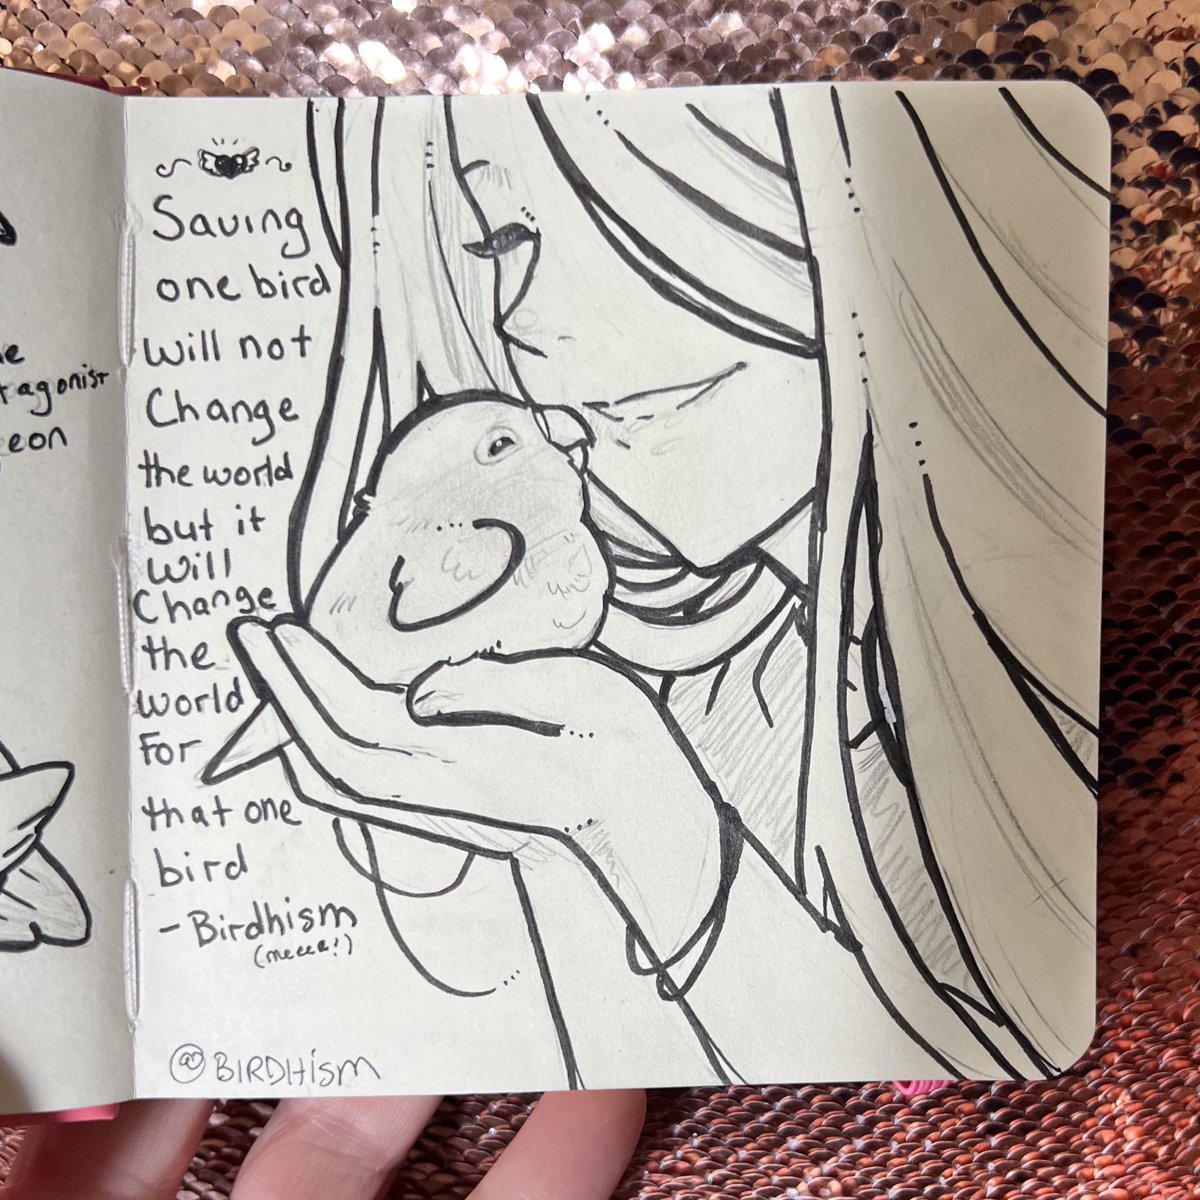 agonist
eon
Saving
one bird
will not
Change
the world
but it
will
Change
the
world
For
that one
bird
- Birdhism
(meeee!)
@BIRDHism